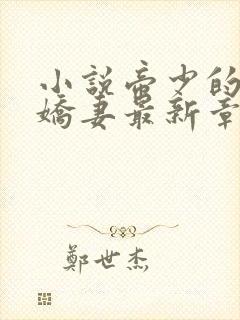 小説帝少的
嬌妻最新章
鄭世杰